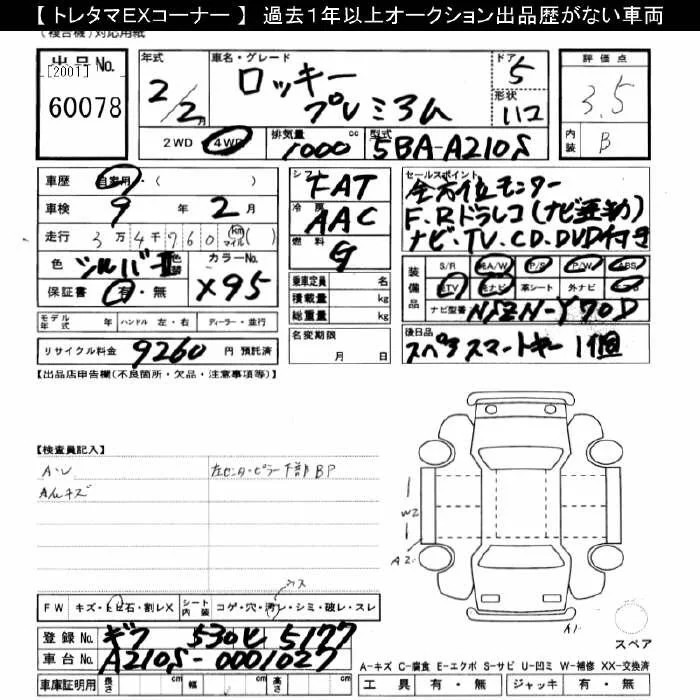 【 トレタマEXコーナー 】 過去1年以上オークション出品歴がない車両
(複合機)対応用紙
出品No.
[2001]
60078
年式
2/2月
車名・グレード
ロッキー
プレミアム
ドア
5
形状
ハコ
評価点
3.5
内装
B
2WD 4WD
排気量 cc
1000
型式
5BA-A210S
車歴 自家用・( )
車検 9年 2月
走行 3万4千960 km マイル( )
色 シルバーII 色替
カラーNo.
X95
保証書 有・無
シフト
FAT
冷房
AAC
燃料
G
セールスポイント
全方位モニター
F.Rドラレコ(ナビ連動)
ナビ・TV.CD.DVD付き
乗車定員 名
積載量 kg
総重量 kg
装備品
S/R 純A/W P/S P/W ABS
純TV 純ナビ 革シート 外ナビ エアB
ナビ型番 NSZN-Y70D
モデル年式 年 ハンドル 左・右 ディーラー・並行
リサイクル料金 9260 円 預託済
名変期限
月 日
後日品
スペアスマートキー 1個
【出品店申告欄(不良箇所・欠品・注意事項等)】
【検査員記入】
A・U
AWキズ
左センターピラー下部BP
W2
A2
A1
スペア
FW キズ・ヒビ石・割レX
シート内装 コゲ・穴・汚レ・シミ・破レ・スレ
ウス
登録No. ギフ 530 ヒ 5177
車台No. A210S-0001027
A-キズ C-腐食 E-エクボ S-サビ U-凹ミ W-補修 XX-交換済
車庫証明用 長さ cm 幅 cm 高さ cm
工具 有・無 ジャッキ 有・無